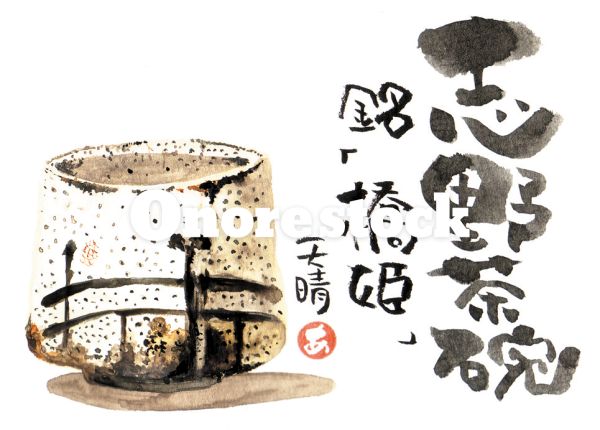 志野茶碗
銘「橋姫」
天晴
Onorestock